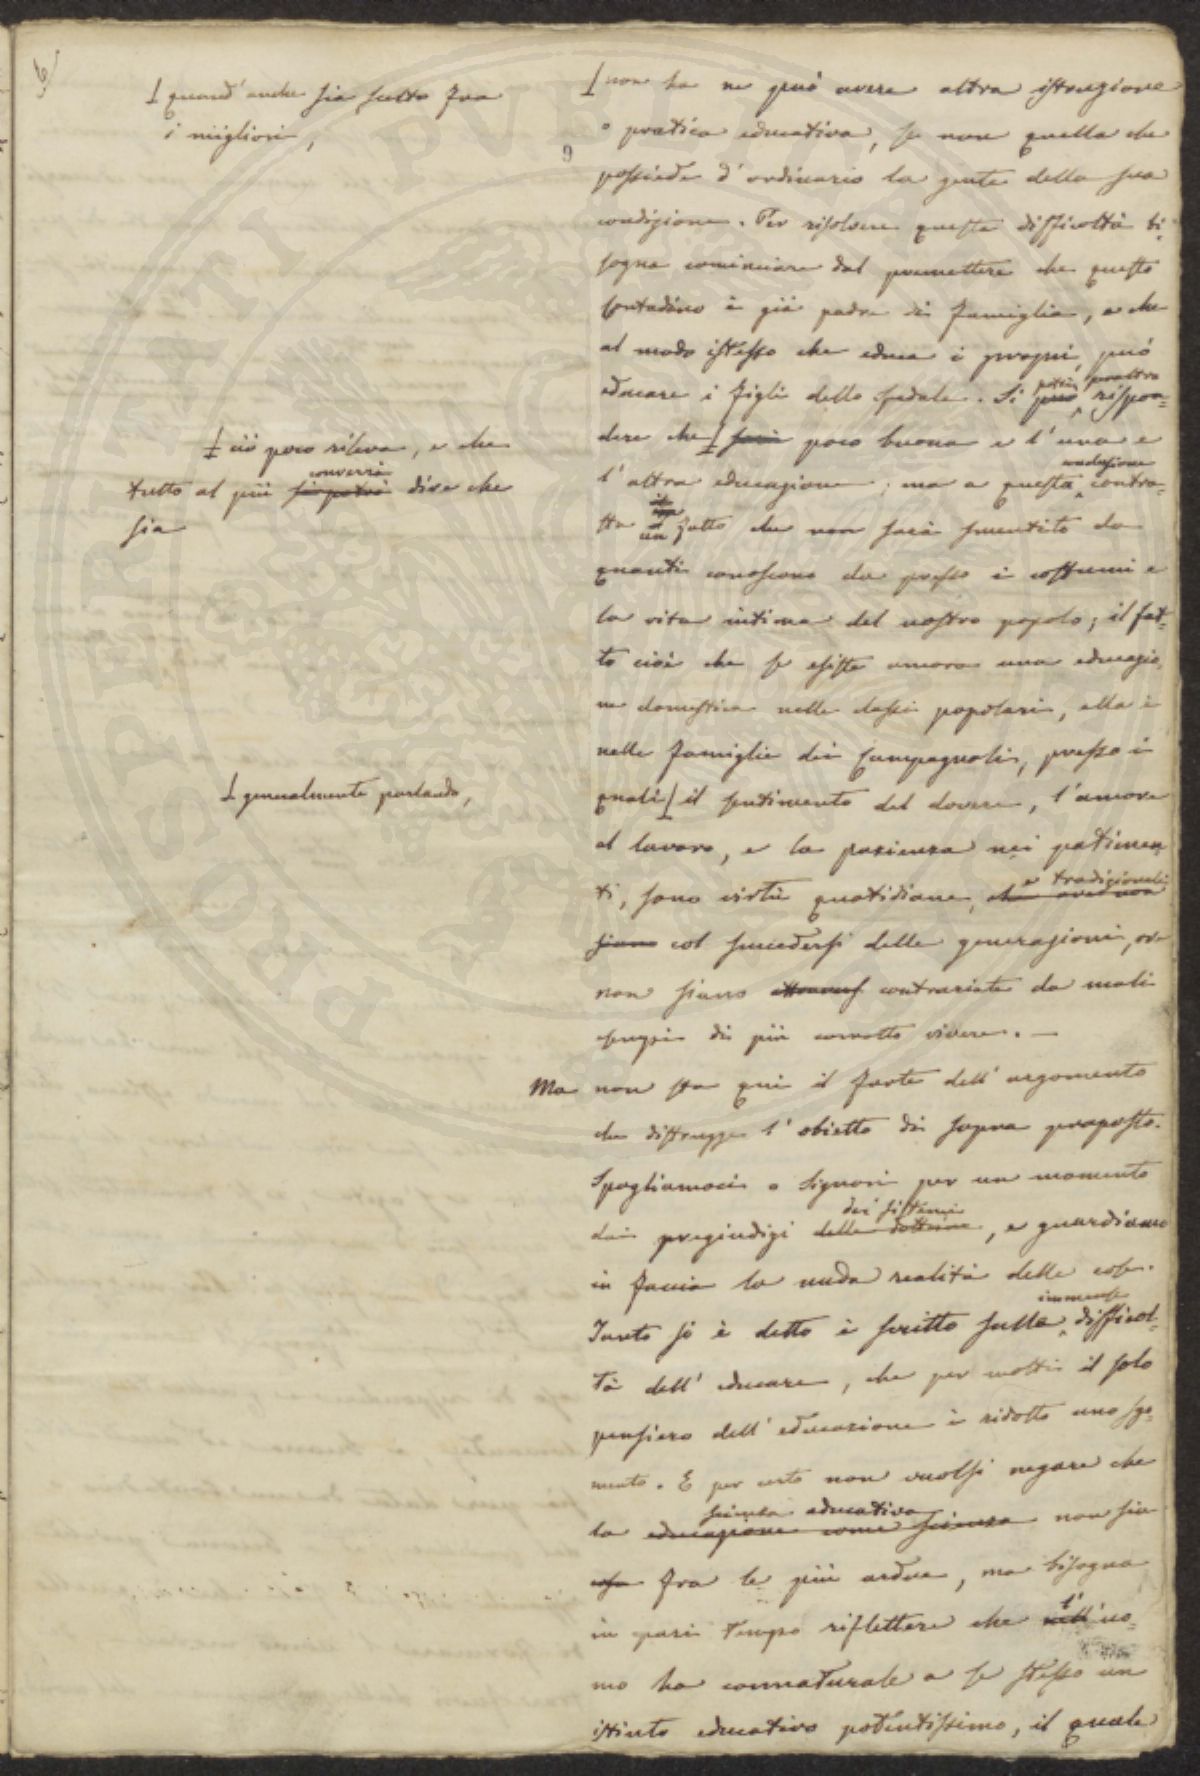 6
I quand'anche sia scelto fra
i migliori,
I non ha ne può avere altra istruzione
o pratica educativa, se non quella che
possiede d'ordinario la gente della sua
condizione. Per risolvere questa difficoltà bi-
sogna cominciare dal premettere che questo
Contadino è già padre di famiglia, e che
al modo istesso che educa i proprj, può
educare i figli dello Spedale. Si può potrà peraltro rispon-
dere che I sarà poco buona e l'una e
I ciò poco rileva, e che
tutto al più si potrà converrà dire che
sia
l'altra educazione; ma a questa conclusione contra-
sta un fatto che non sarà smentito da
quanti conoscono da presso i costumi e
la vita intima del nostro popolo; il fat-
to cioè che se esiste ancora una educazio-
ne domestica nelle classi popolari, ella è
nelle famiglie dei Campagnoli, presso i
quali I il sentimento del dovere, l'amore
I generalmente parlando,
al lavoro, e la pazienza nei patimen-
ti, sono virtù quotidiane, e tradizionali
col succedersi delle generazioni, ove
non siano contrariate da mali
esempi di più corrotto vivere. —
Ma non sta qui il forte dell'argomento
che distrugge l'obietto di sopra proposto.
Spogliamoci o Signori per un momento
dai pregiudizi delle dottrine dei sistemi, e guardiamo
in faccia la nuda realità delle cose.
Tanto si è detto è scritto sulla immense difficol-
tà dell'educare, che per molti il solo
pensiero dell'educazione è ridotto uno sgo-
mento. E per certo non vuolsi negare che
la educazione come scienza scienza educativa non sia
cosa fra le più ardue, ma bisogna
in pari tempo riflettere che nell' l'uo-
mo ha connaturale a se stesso un
istinto educativo potentissimo, il quale